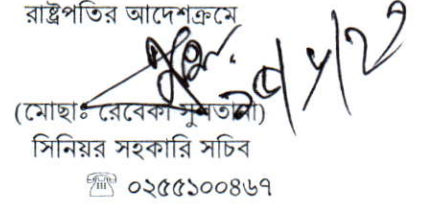 রাষ্ট্রপতির আদেশক্রমে
(মোছাঃ রেবেকা সুলতানা)
সিনিয়র সহকারি সচিব
☎ ০২৫৫১০০৪৬৭